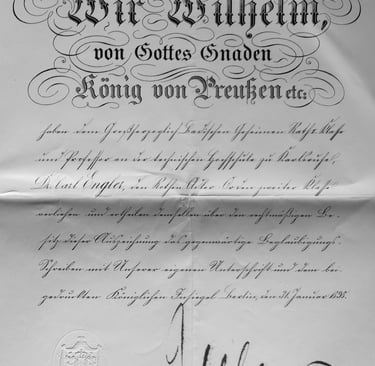 Wir Wilhelm,
von Gottes Gnaden
König von Preußen etc:
haben dem Großherzoglich Badischen Geheimen Rath I. Klasse
und Professor an der technischen Hochschule zu Karlsruhe,
Dr. Carl Engler, den Rothen Adler-Orden zweiter Klasse
verliehen und ertheilen demselben über den rechtmäßigen Be-
sitz dieser Auszeichnung das gegenwärtige Beglaubigungs-
Schreiben mit Unserer eigenen Unterschrift und dem bei-
gedruckten Königlichen Insiegel. Berlin, den 31. Januar 1895.